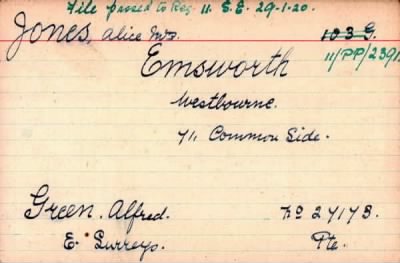 File passed to Reg. 11. S.E. 29-1-20.
Jones, Alice Mrs. 103 G.
11/PP/2391
Emsworth
Westbourne.
74 Common Side.
Green. Alfred. No 27173.
E. Surreys. Pte.